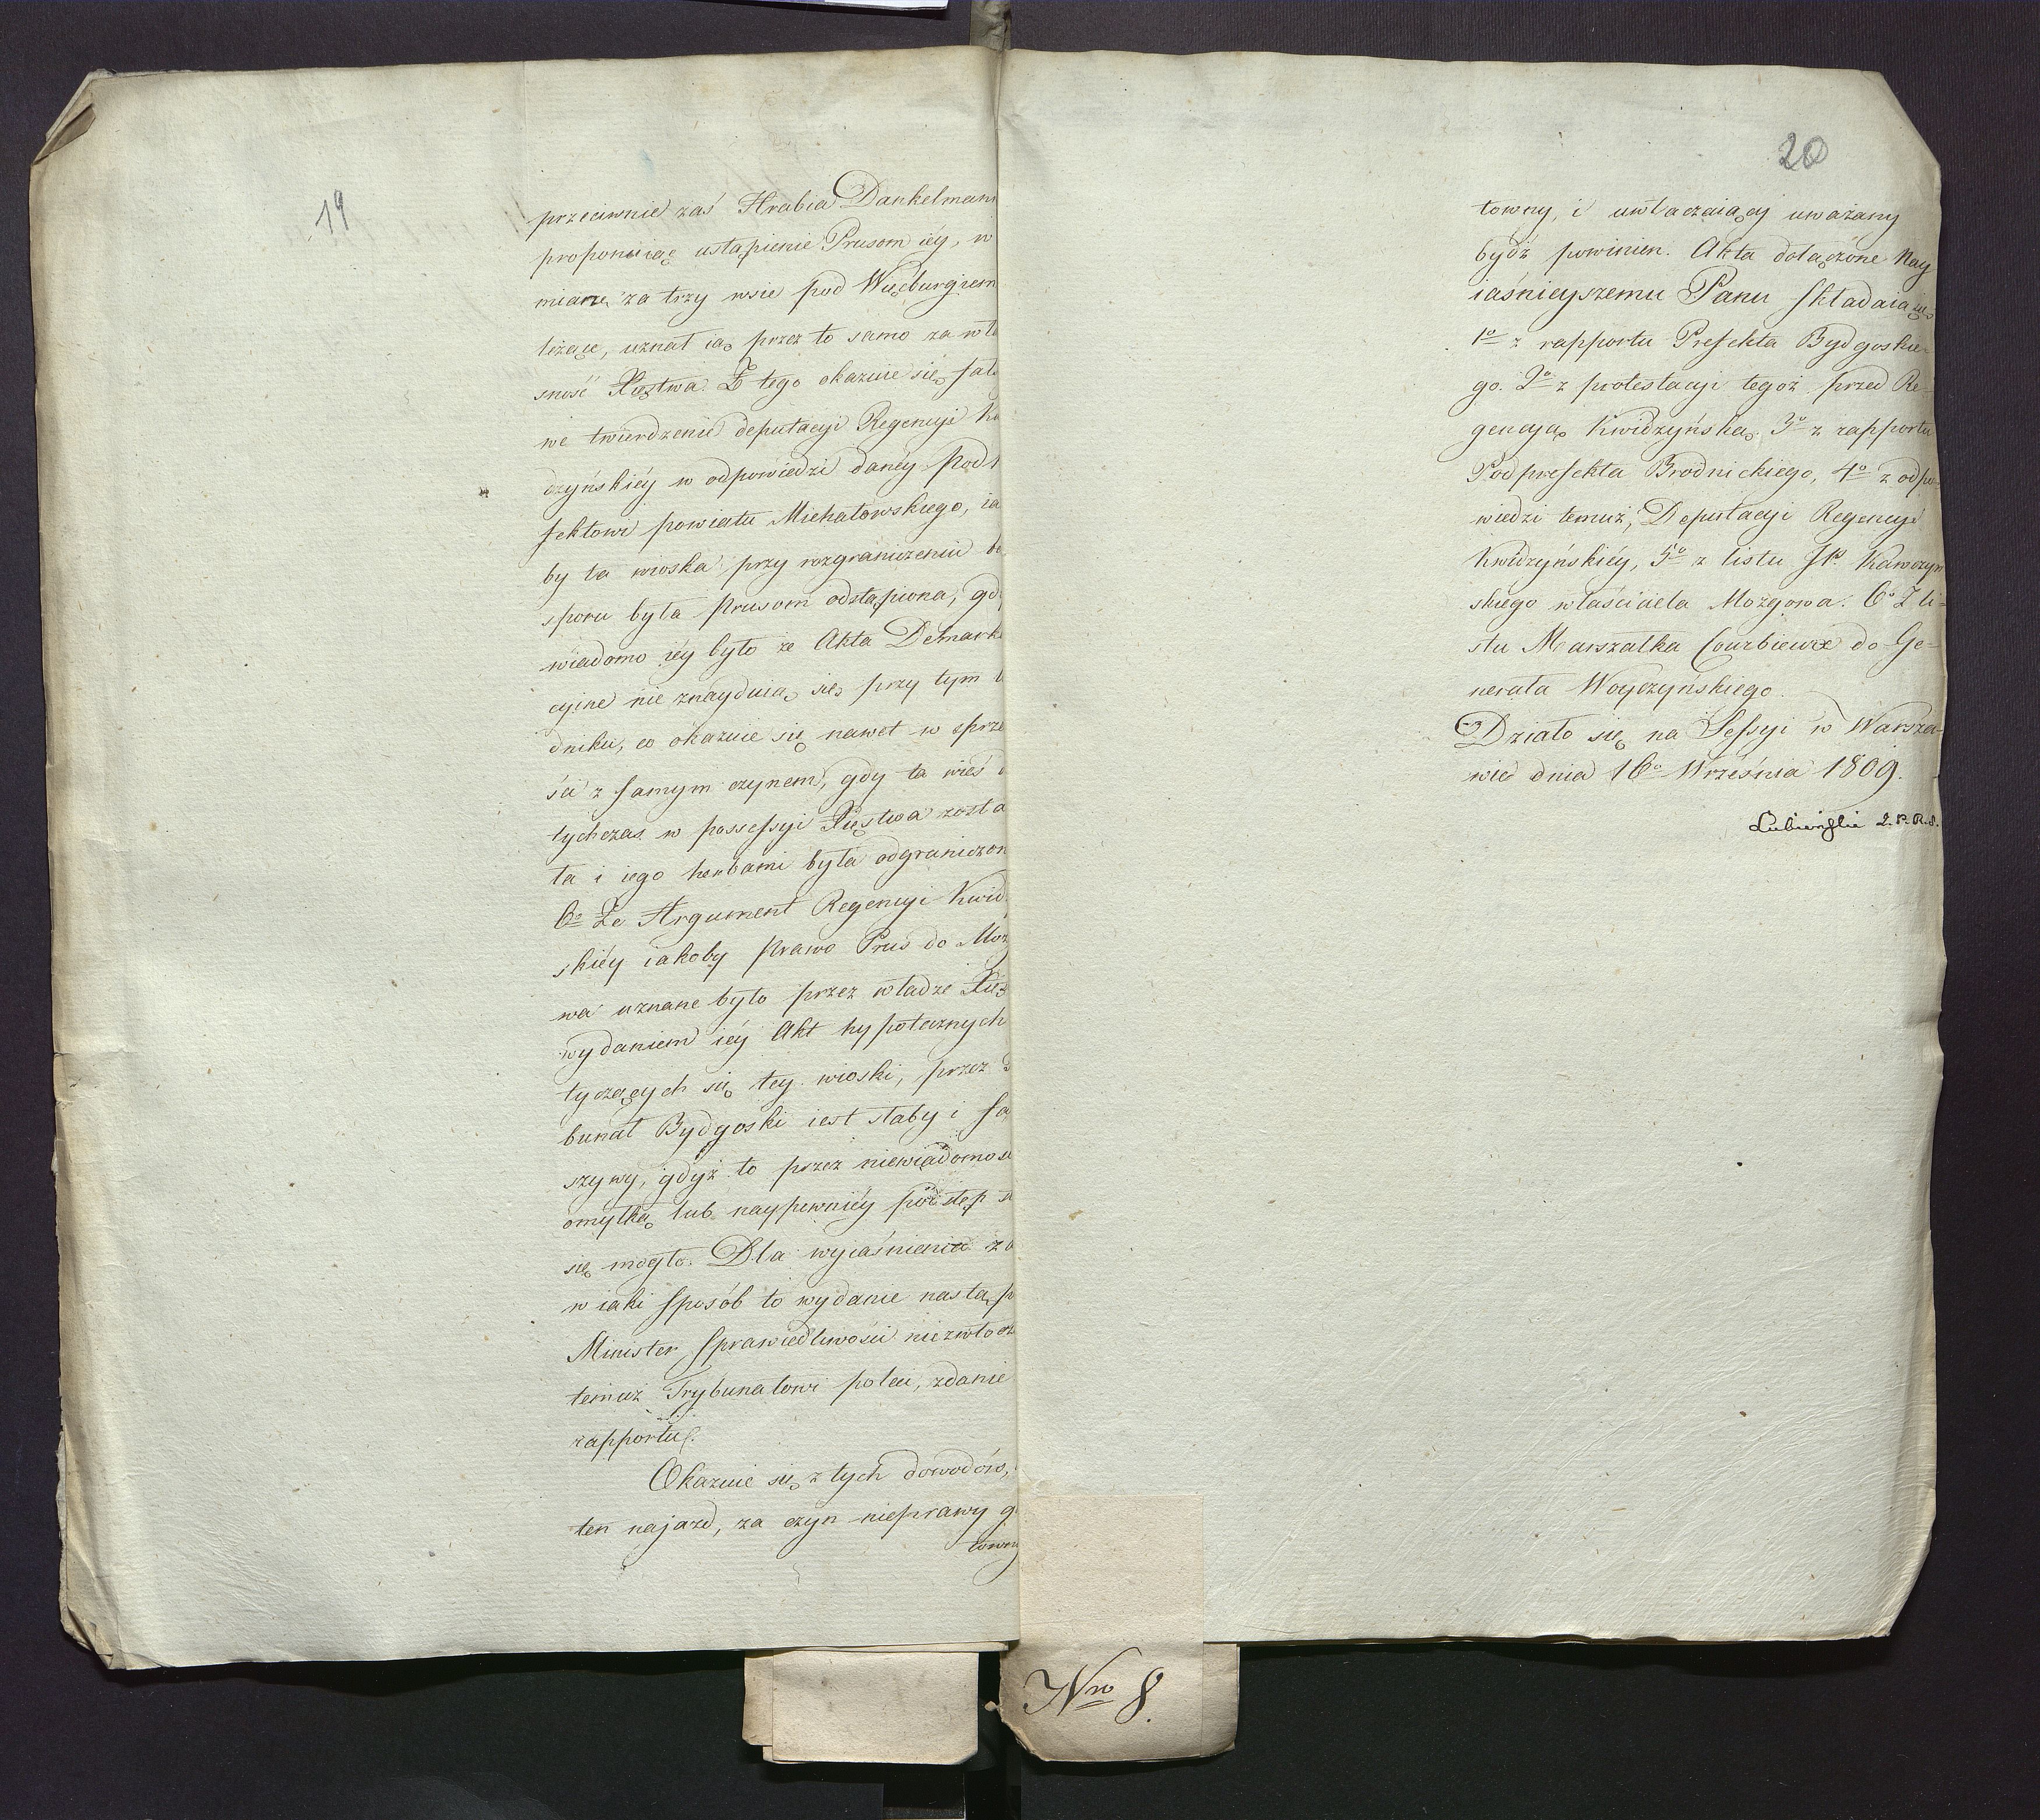 19
przeciwnie zaś Hrabia Dankelman
proponuiąc ustąpienie Prusom iéy, w
mianę za trzy wsie pod Więcburgiem
leżące, uznał ią przez to samo za wła
sność Xięstwa. Z tego okazuie się fał
we twierdzenie deputacyi Regencyi K
dzyńskiéy w odpowiedzi danéy Pod
fektowi powiatu Michałowskiego, ia
by ta wioska przy rozgraniczeniu be
sporu była Prusom odstąpiona, gd
wiadomo iéy było że Akta Demark
cyine nie znayduią się przy tym
dniku, co okazuie się nawet w sprze
ści z samym czynem, gdy ta wieś
tychczas w possessyi Xięstwa zosta
ła i iego herbami była odgraniczon
6o Że Argument Regencyi Kwid
skiéy iakoby Prawo Prus do Moz
wa uznane było przez władze Xię
wydaniem iéy Akt hypotecznych
tyczących się tey wioski, przez
bunał Bydgoski iest słaby i fa
szywy, gdyż to przez niewiadomoś
omyłkę lub naypewniéy podstęp
się mogło. Dla wyiaśnienia za
w iaki sposób to wydanie nastąp
Minister Sprawiedliwości niezwłocz
temuż Trybunałowi poleci, zdanie
rapportu.
Okazuie się z tych dowodów,
ten najazd, za czyn nieprawy g
towny
20
towny, i uwłaczaiący uważany
bydź powinien. Akta dołączone Nay
iaśnieyszemu Panu składaią się
1o z rapportu Prefekta Bydgoskie-
go. 2o z protestacyi tegoż przed Re-
gencyą Kwidzyńską. 3o z rapportu
Podprefekta Brodnickiego, 4o z odpo-
wiedzi temuż, Deputacyi Regencyi
Kwidzyńskiéy, 5o z listu JP. Kawczyń
skiego właściciela Mozgowa. 6o Z li-
stu Marszałka Courbiewe do Ge-
nerała Woyczyńskiego.
Działo się na Sessyi w Warsza-
wie dnia 16o Września 1809.
Lubieński
Nro 8.